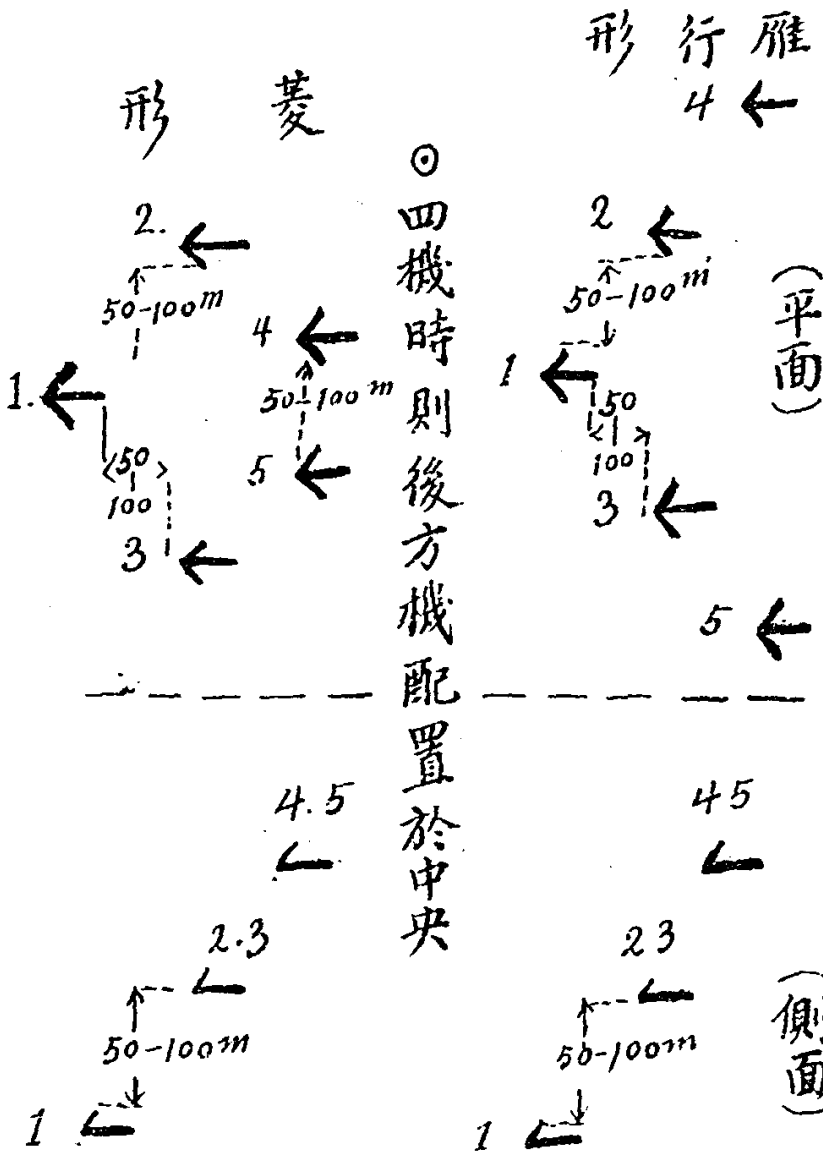 雁行形
4
2
50-100m
1
50
100
3
5
(平面)
45
23
50-100m
1
(側面)
⊙四機時則後方機配置於中央
菱形
2.
50-100m
4
1.
50-100m
50
100
5
3
4.5
2.3
50-100m
1